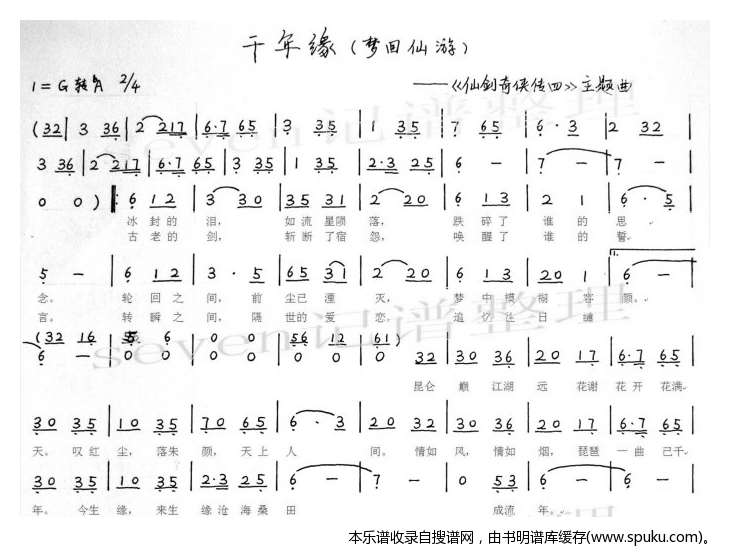 千年缘(梦回仙游)
1=G转A 2/4 ——《仙剑奇侠传四》主题曲
(32 | 3 36 | 2 217 | 6·7 65 | 3 35 | 1 35 | 7 65 | 6·3 | 2 32 |
3 36 | 2 217 | 6·7 65 | 3 35 | 1 35 | 2·3 25 | 6 - | 7 - | 7 - |
0 0 ) |: 6 12 | 3 30 | 35 31 | 2 20 | 6 13 | 2 1 | 6·5 |
冰封的 泪, 如流星陨 落, 跌碎了 谁的 思
古老的 剑, 斩断了宿 怨, 唤醒了 谁的 誓
5 - | 6 12 | 3·5 | 65 31 | 2 20 | 6 13 | 20 1 | 6 - |
念。 轮回之 间, 前 尘已 湮 灭, 梦中模 糊 容 颜。
言。 转瞬之 间, 隔 世的 爱 恋, 日 缠
(32 16 | 5 6 | 0 0 | 56 12 | 61)
6 - | 0 0 | 0 0 | 0 0 | 0 32 | 30 36 | 20 17 | 6·7 65 |
昆仑 巅 江湖 远 花谢 花开 花满
30 35 | 10 35 | 70 65 | 6·3 | 20 32 | 30 36 | 20 17 | 6·7 65 |
天。 叹红 尘, 落朱 颜, 天上 人 间。 情如 风, 情如 烟, 琵琶 一曲 已千
30 35 | 10 35 | 2·3 25 | 6 - | 7 - | 0 53 | 6 - | 6 - |
年。 今生 缘, 来生 缘 沧 海桑 田 成流 年。
seven记谱整理
seven记谱整理
本乐谱收录自搜谱网,由书明谱库缓存(www.spuku.com)。